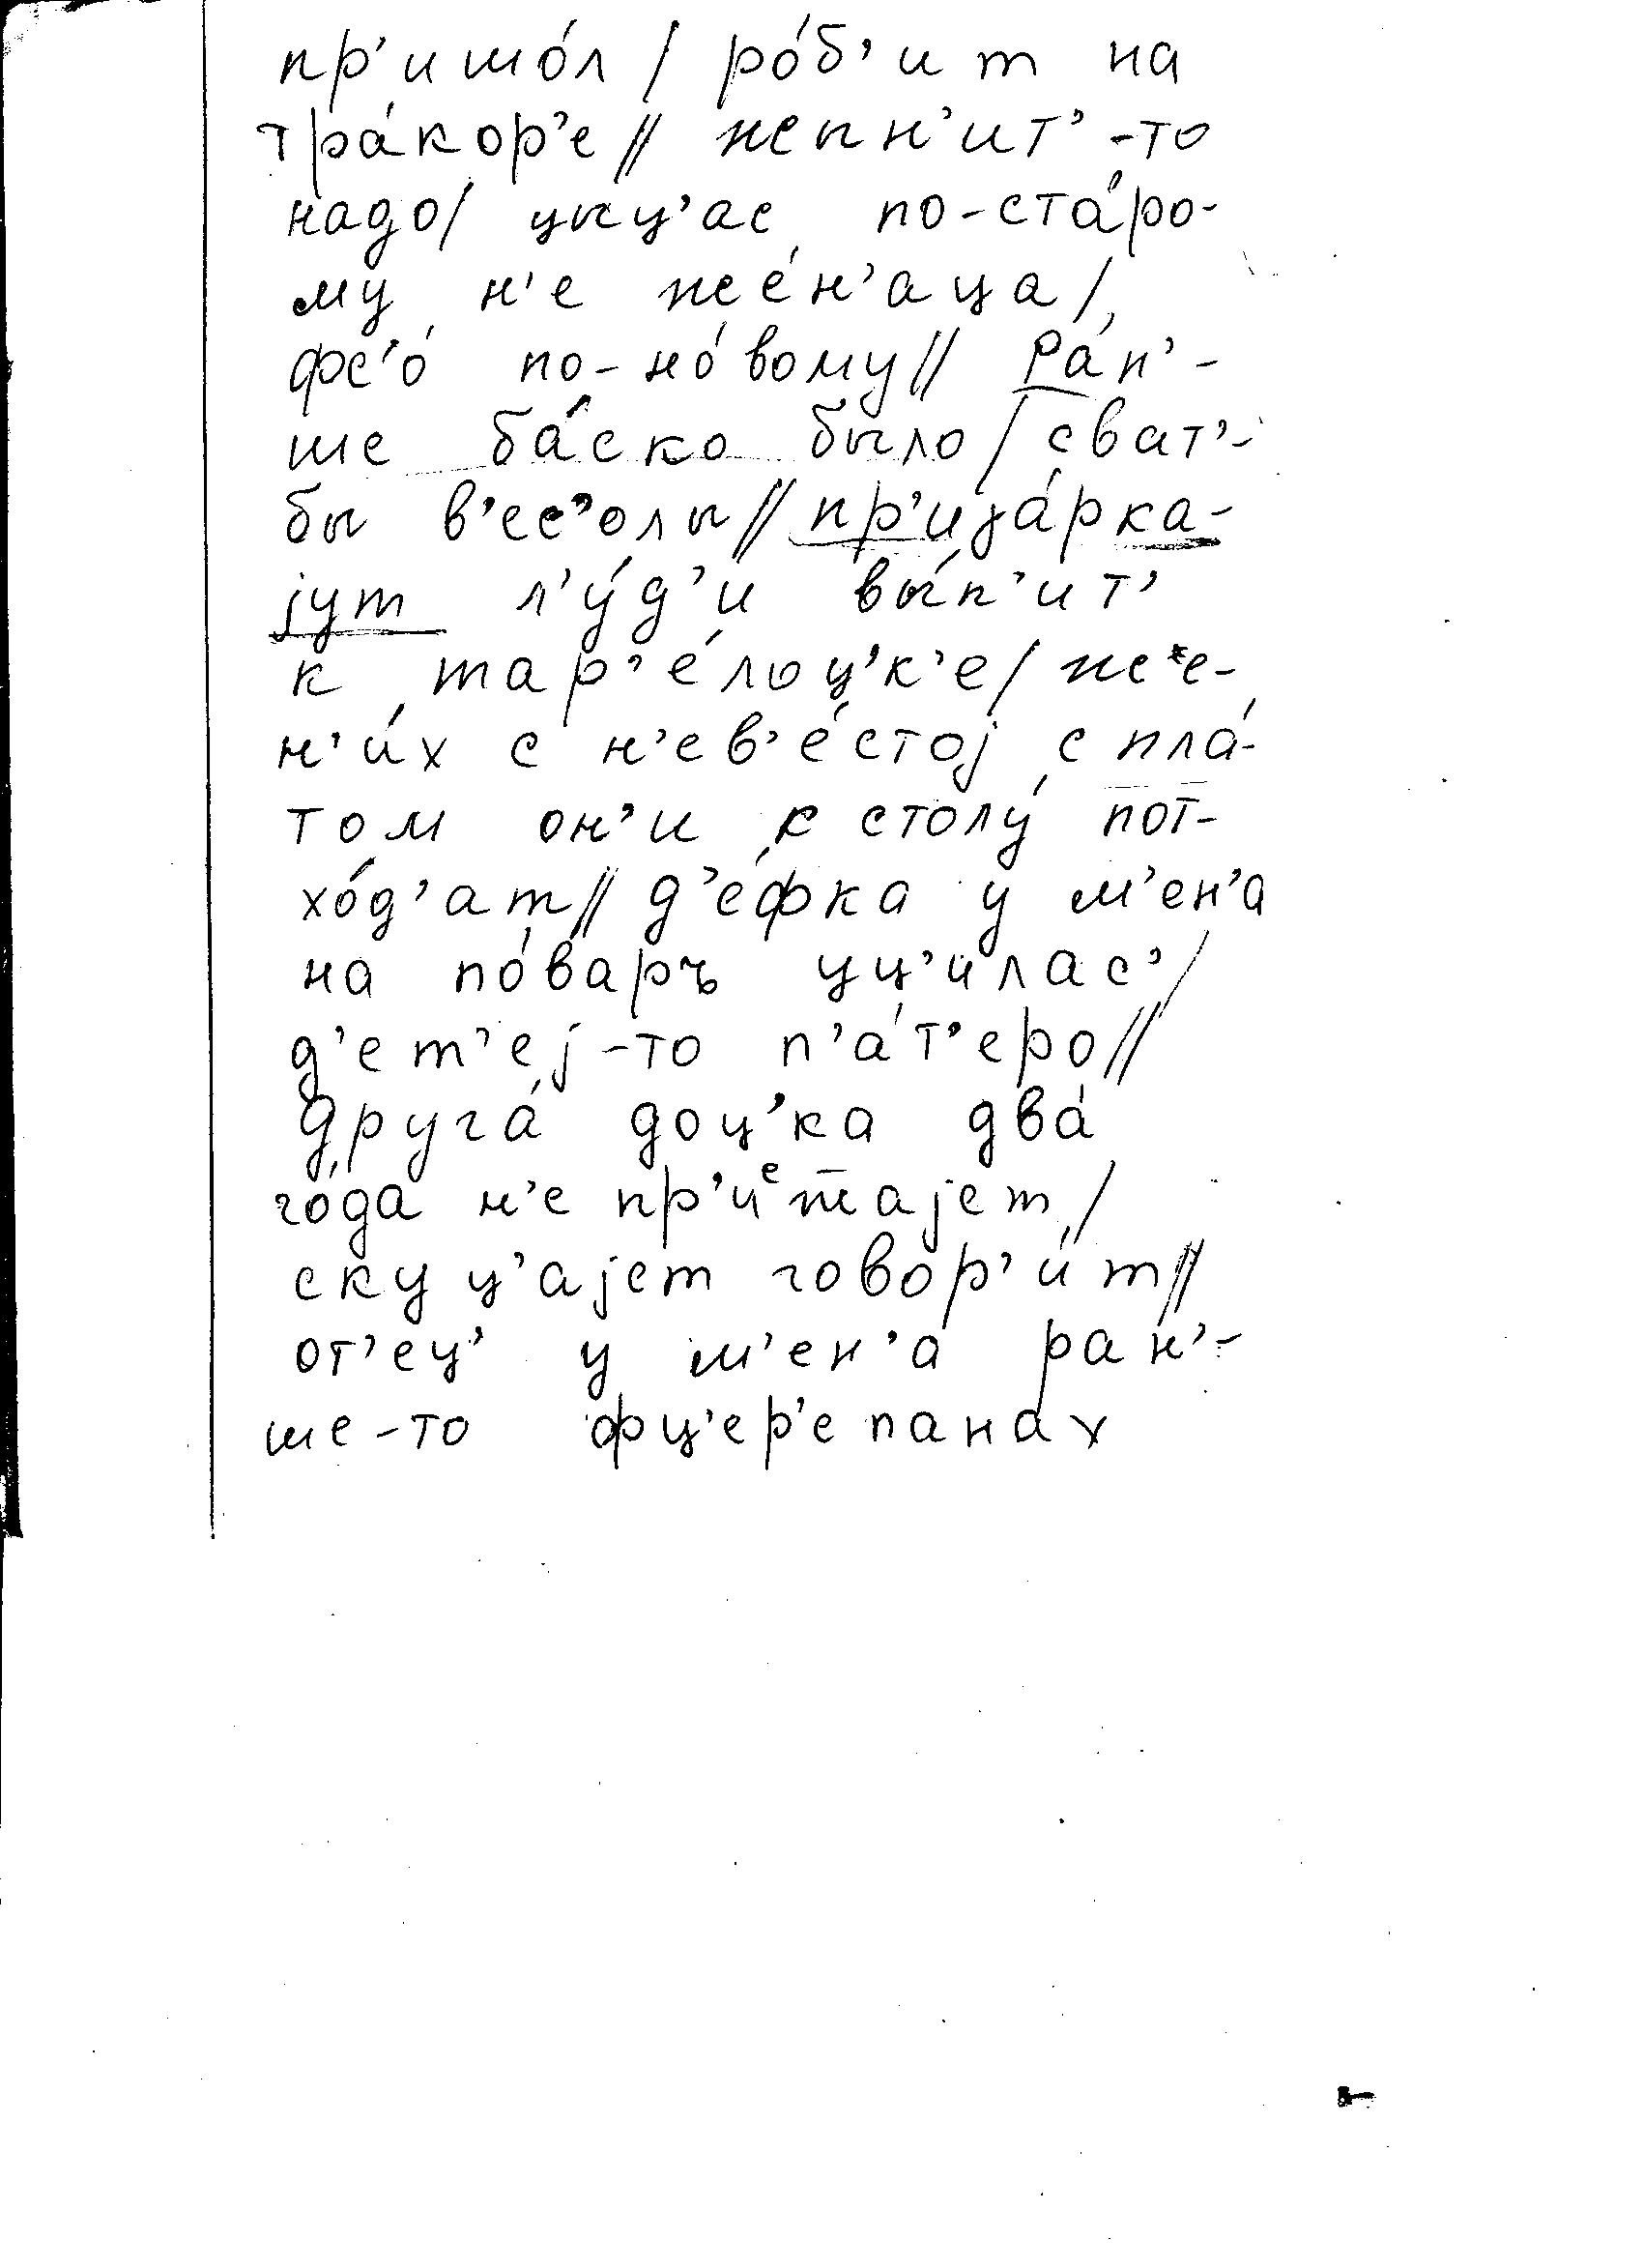 пр’ишо́л / ро́б’ит на
тра́кор’е // жын’ит’-то
надо / цыц’ас по-ста́ро-
му н’е же́н’аца /
фс’о́ по-но́вому // Ра́н’-
ше ба́ско было / сват’-
бы в’ес’олы // пр’иза́рка-
jут л’у́д’и вы́п’ит’
к тар’е́лоц’к’е / же-
н’и́х с н’ев’е́стоj с пла́-
том он’и к столу́ пот-
хо́д’ат // д’е́фка у м’ен’а
на по́варъ уц’илас’ /
д’ет’еj-то п’а́т’еро //
Друга́ доц’ка два́
го́да н’е пр’иᵉтаjет /
скуц’аjет говор’и́т //
от’ец’ у м’ен’а ран’-
ше-то фц’ер’епанах